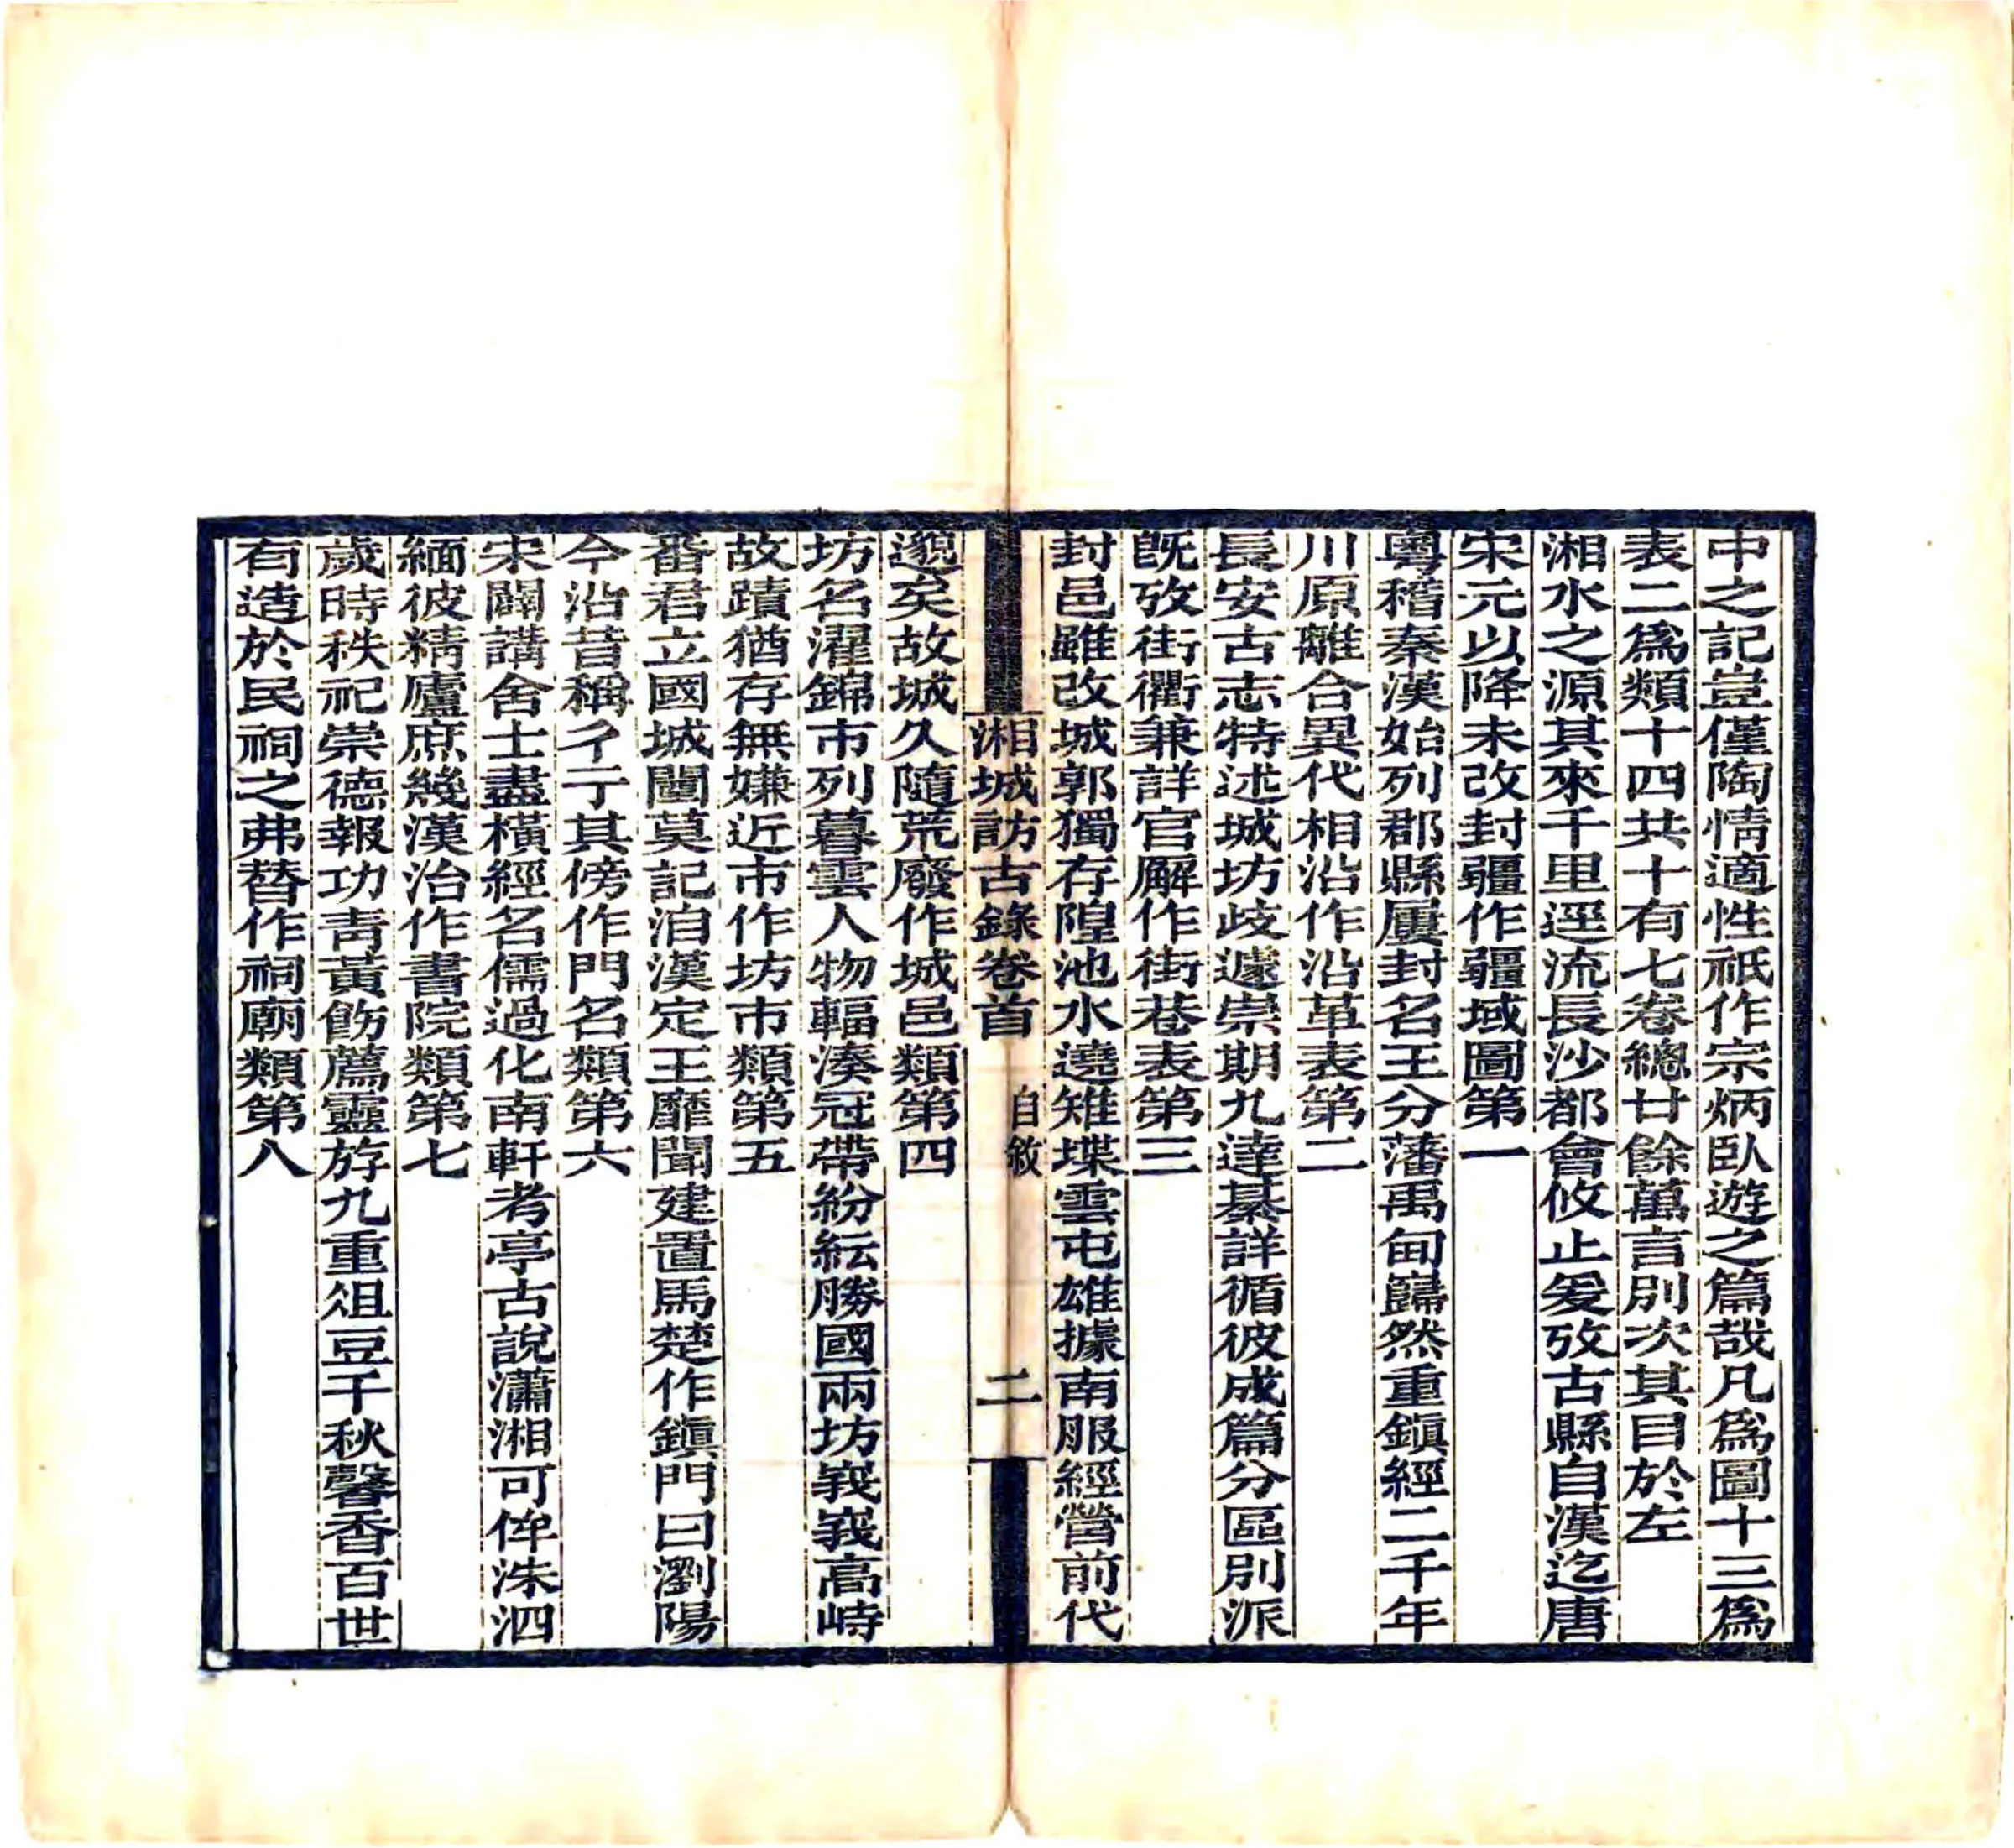 中之記豈僅陶情適性祇作宗炳臥遊之篇哉凡爲圖十三爲
表二爲類十四共十有七卷總廿餘萬言別次其目於左
湘水之源其來千里逕流長沙都會攸止爰攷古縣自漢迄唐
宋元以降未改封疆作疆域圖第一
粵稽秦漢始列郡縣屢封名王分藩禹甸巋然重鎭經二千年
川原離合異代相沿作沿革表第二
長安古志特述城坊歧遽崇期九達綦詳循彼成篇分區別派
旣攷街衢兼詳官廨作街巷表第三
封邑雖改城郭獨存隍池水遶雉堞雲屯雄據南服經營前代
湘城訪古錄卷首 自敘 二
邈矣故城久隨荒廢作城邑類第四
坊名濯錦市列暮雲人物輻湊冠帶紛紜勝國兩坊峩峩高峙
故蹟猶存無嫌近市作坊市類第五
番君立國城闉莫記洎漢定王靡聞建置馬楚作鎭門曰瀏陽
今沿昔稱彳亍其傍作門名類第六
宋闢講舍士盡橫經名儒過化南軒考亭古說瀟湘可侔洙泗
緬彼精廬庶幾漢治作書院類第七
歲時秩祀崇德報功靑黃飭薦靈斿九重俎豆千秋馨香百世
有造於民祠之弗替作祠廟類第八